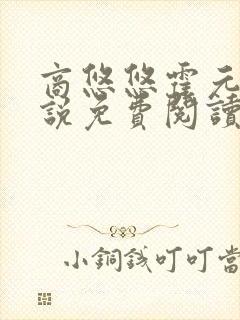 商悠悠霍元
說免費閱讀
小銅錢叮叮當